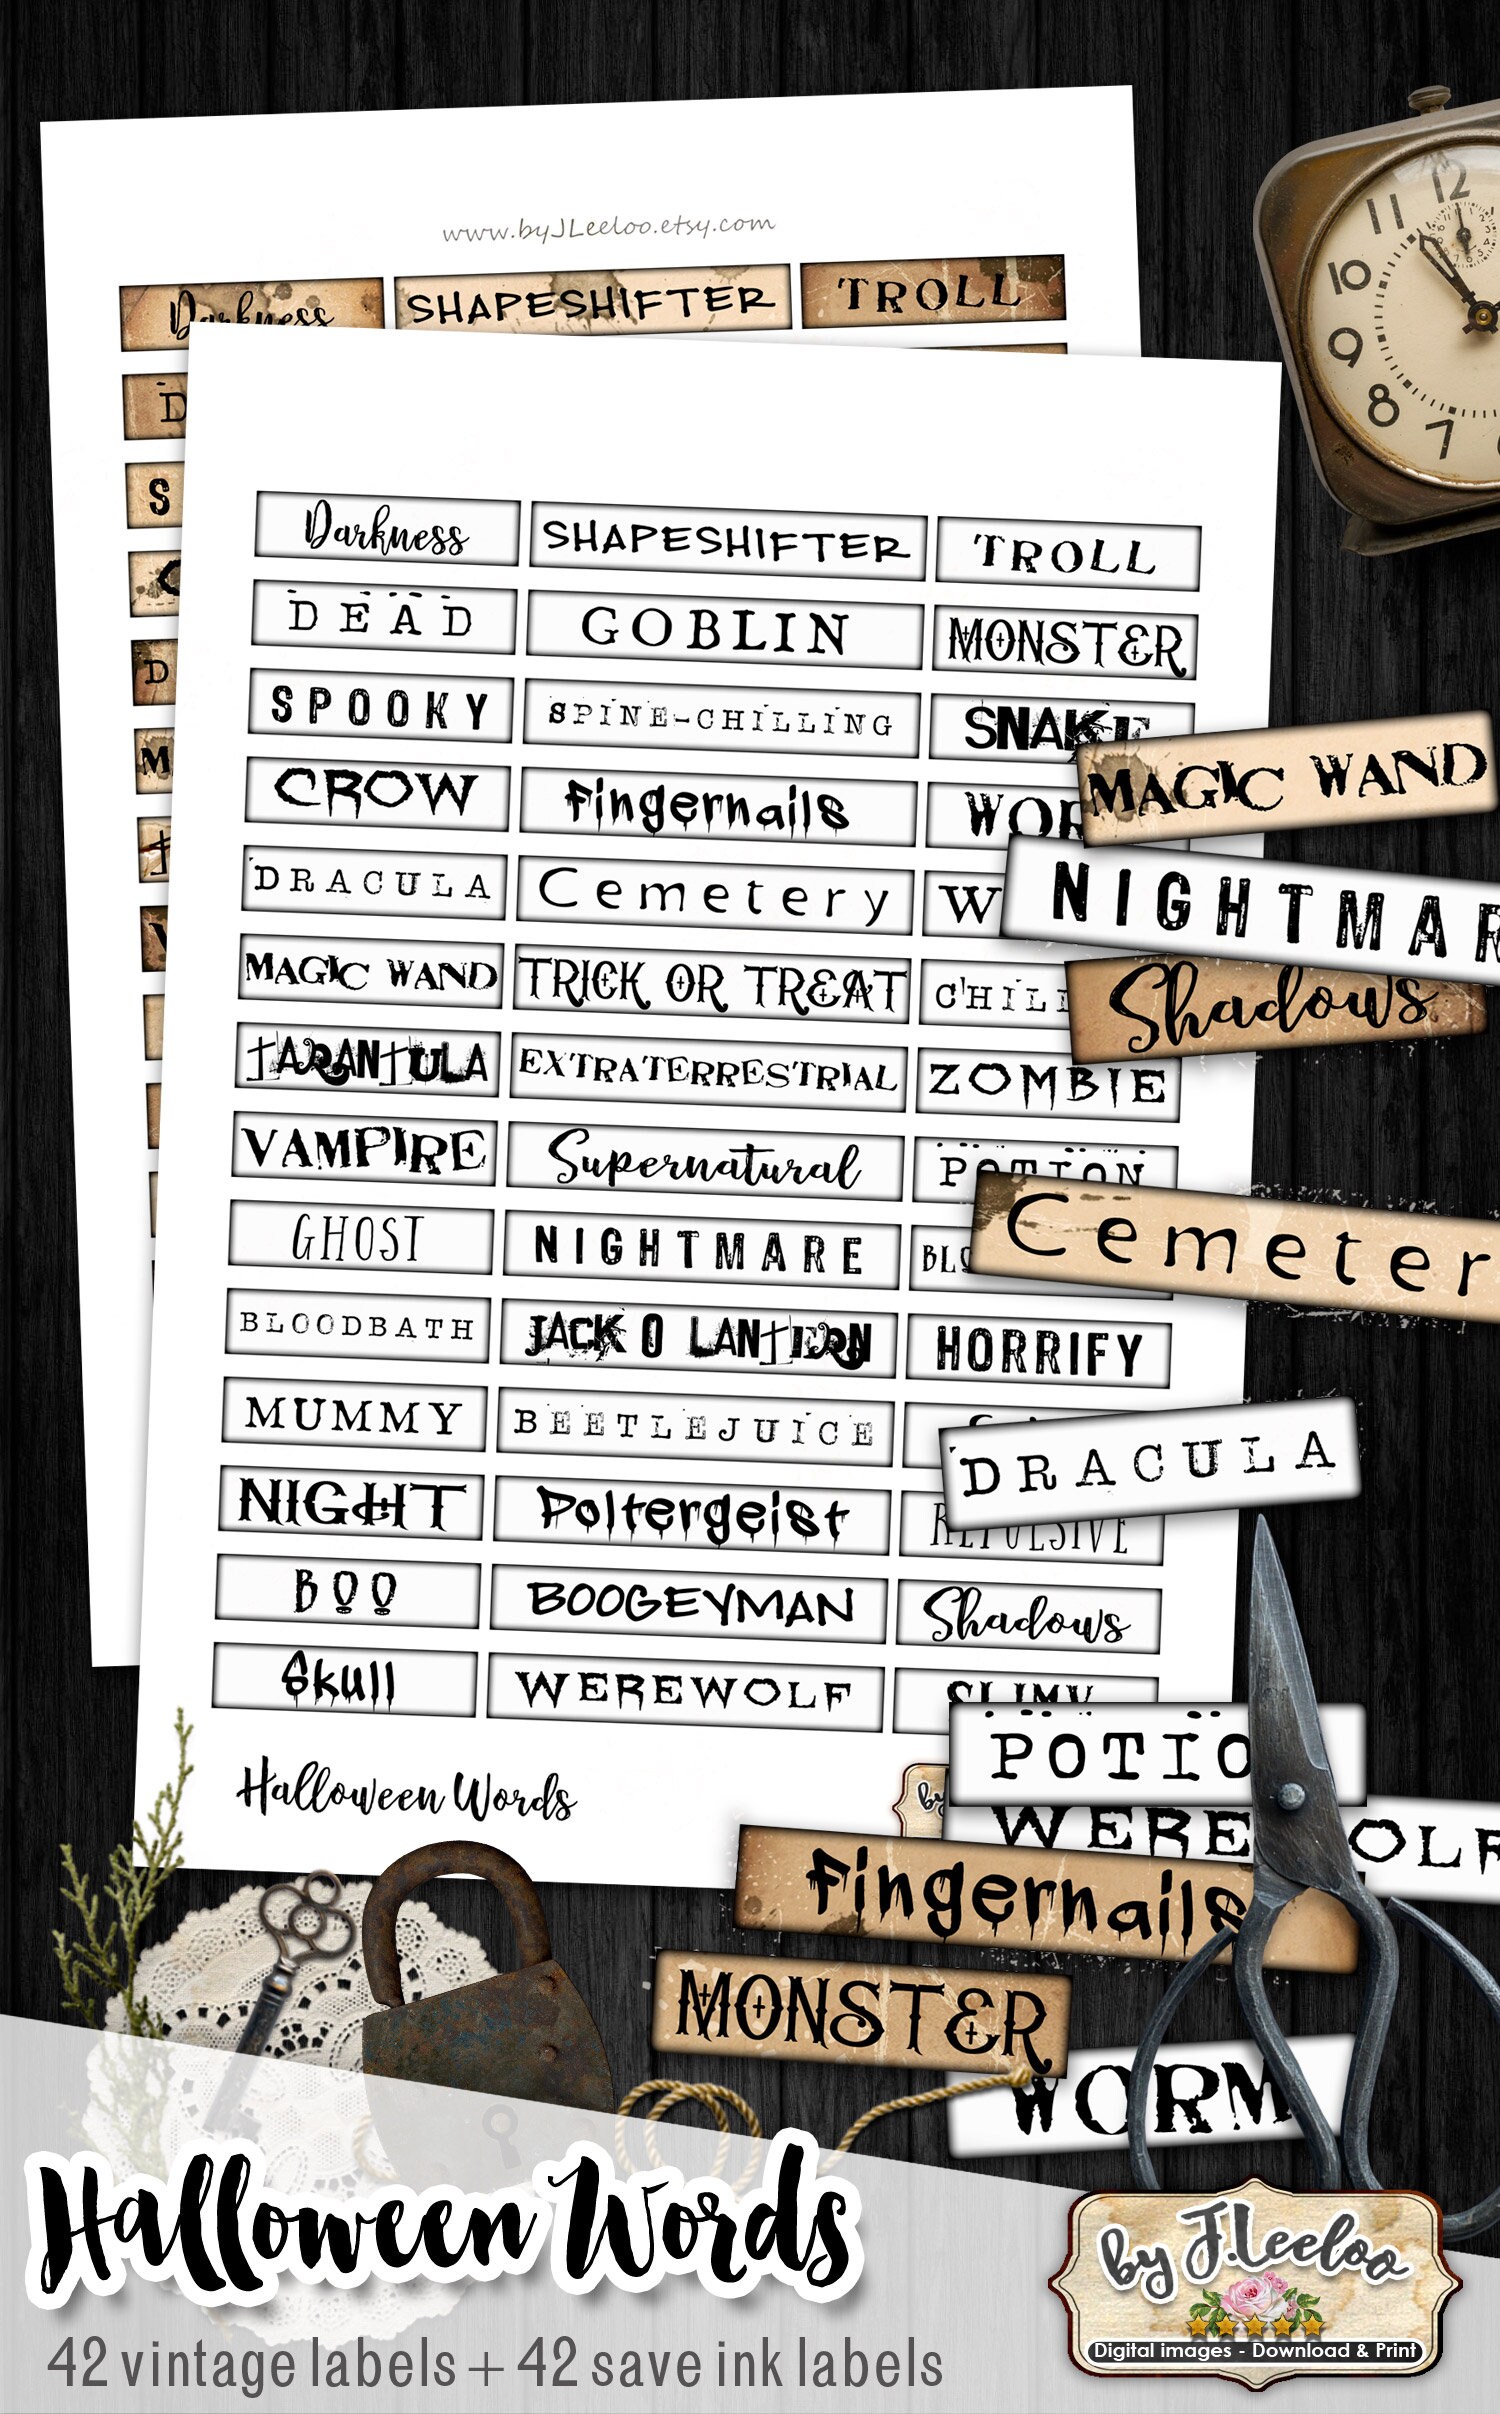 www.byJLeeloo.etsy.com
Darkness SHAPESHIFTER TROLL
Darkness SHAPESHIFTER TROLL
DEAD GOBLIN MONSTER
SPOOKY SPINE-CHILLING SNAKE
CROW Fingernails
DRACULA Cemetery
MAGIC WAND TRICK OR TREAT
TARANTULA EXTRATERRESTRIAL ZOMBIE
VAMPIRE Supernatural POTION
GHOST NIGHTMARE
BLOODBATH JACK O LANTERN HORRIFY
MUMMY BEETLEJUICE
NIGHT Poltergeist REPULSIVE
BOO BOOGEYMAN Shadows
Skull WEREWOLF SLIMY
Halloween Words
MAGIC WAND
NIGHTMAR
Shadows
Cemeter
DRACULA
POTIO
WEREWOLF
Fingernails
MONSTER
WORM
12
11
10
9
8
7
Halloween Words
42 vintage labels + 42 save ink labels
by J.Leeloo
Digital images - Download & Print